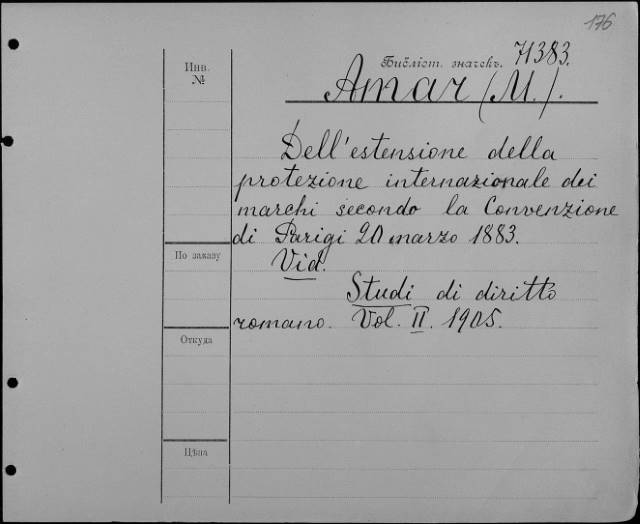 176
Инв.
№
Библіот. значекъ. 71383.
Amar (M.).
Dell'estensione della
protezione internazionale dei
marchi secondo la Convenzione
di Parigi 20 marzo 1883.
По заказу
Vid.
Studi di diritto
romano. Vol. II. 1905.
Откуда
Цѣна